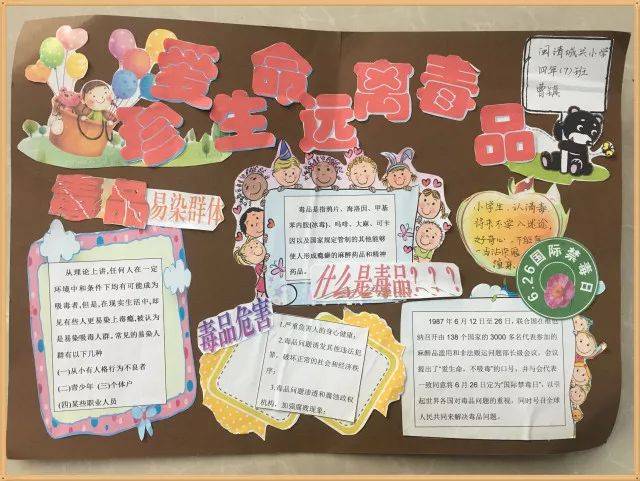 珍爱生命远离毒品
闽清城关小学
四年(7)班
毒品易染群体
从理论上讲,任何人在一定
环境中和条件下均有可能成为
吸毒者,但是,在现实生活中,却
见有些人更易染上毒瘾,被认为
是易染吸毒人群。常见的易染人
群有以下几种
(一)从小有人格行为不良者
(二)青少年 (三)个体户
(四)某些职业人员
毒品是指鸦片、海洛因、甲基
苯丙胺(冰毒)、吗啡、大麻、可卡
因以及国家规定管制的其他能够
使人形成瘾癖的麻醉药品和精神
药品。
什么是毒品???
小学生,认清毒
将来不要入迷途,
好奇心,不能有
一当法盲
6.26国际禁毒日
毒品危害
1.严重危害人的身心健康;
2.毒品问题诱发其他违法犯
罪,破坏正常的社会和经济秩
序;
3.毒品问题渗透和腐蚀政权
机构,加强腐败现象;
1987年6月12至26日,联合国在维也
纳召开由138个国家的3000多名代表参加的
麻醉品滥用和非法贩运问题部长级会议。会议
提出了“爱生命,不吸毒”的口号,并与会代表
一致同意将6月26日定为“国际禁毒日”,以引
起世界各国对毒品问题的重视,同时号召全球
人民共同来解决毒品问题。